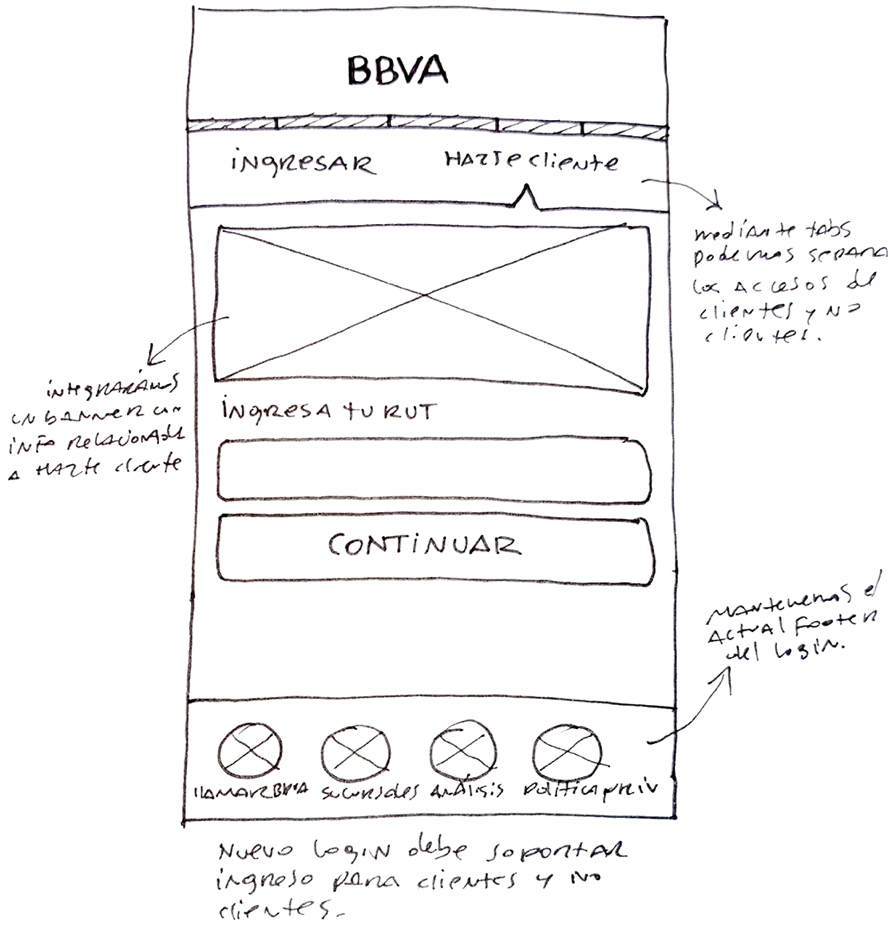 BBVA
INGRESAR HAZTE CLIENTE
mediante tabs
podemos separar
los ACCESOS de
clientes y NO
clientes.
integraríamos
un banner con
info RELACIONADA
A HAZTE cliente
INGRESA tu RUT
CONTINUAR
MANTENEMOS el
ACTUAL FOOTER
del login.
LLAMAR BBVA sucursales ANÁLISIS política priv
NUEVO LOGIN debe SOPORTAR
ingreso para clientes y no
clientes.-